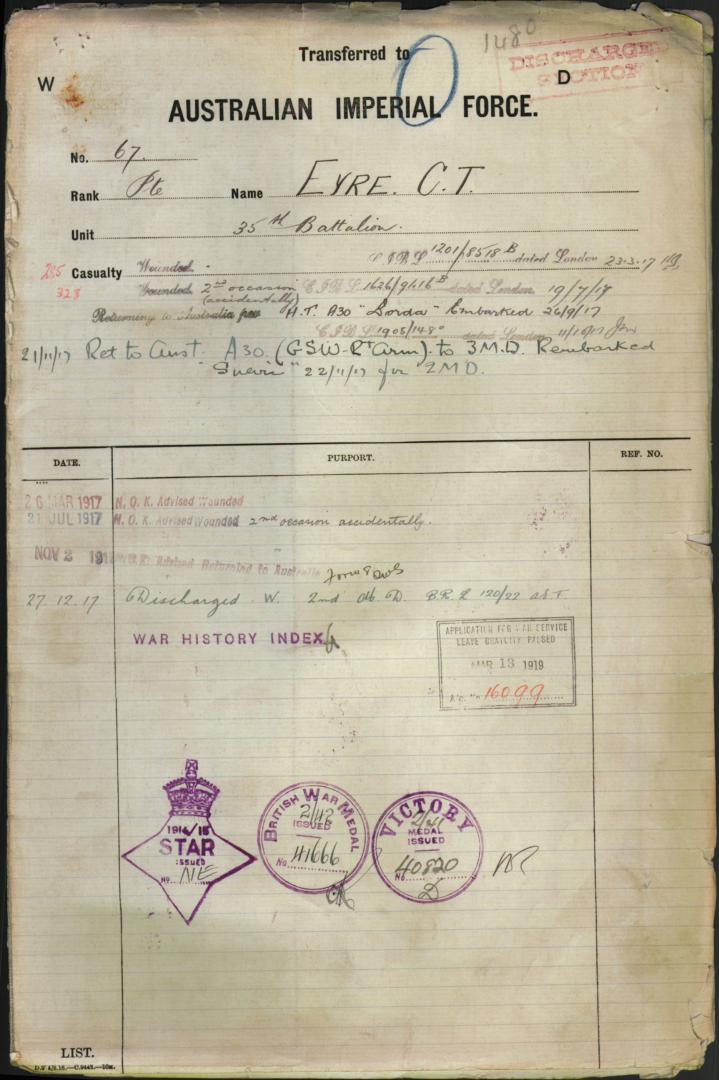 Transferred to
1480
DISCHARGED
SECTION
W
D
AUSTRALIAN IMPERIAL FORCE.
No. 67.
Rank Pte Name EYRE. C.T.
Unit 35th Battalion.
285 Casualty Wounded - C.I.B.L 1201/8518 B dated London 23.3.17
328 Wounded 2nd occasion C.I.B.L 1626/9416 B dated London 19/7/17
(accidentally)
Returning to Australia per H.T. A30 "Borda" Embarked 26/9/17
C.I.B.L 1905/1480 dated London 11/10/17
21/11/17 Ret to Aust. A30. (GSW-Rt Arm). to 3 M.D. Reembarked
"Suevic" 22/11/17 for 2MD.
DATE. PURPORT. REF. NO.
26 MAR 1917 N.O.K. Advised Wounded
21 JUL 1917 N.O.K. Advised Wounded 2nd occasion accidentally.
NOV 2 191 N.O.K. Advised Returned to Australia
27.12.17 Discharged W. 2nd M.D. B.R.L 120/22
WAR HISTORY INDEX
APPLICATION FOR WAR SERVICE
LEAVE GRATUITY PASSED
MAR 13 1919
A/c. No 16099
1914/15
STAR
ISSUED
No. NIE
BRITISH WAR MEDAL
2/42
ISSUED
No. 41666
VICTORY
2/41
MEDAL
ISSUED
No. 40820
D
LIST.
D.W 4/3.16.—C.9447.—10m.